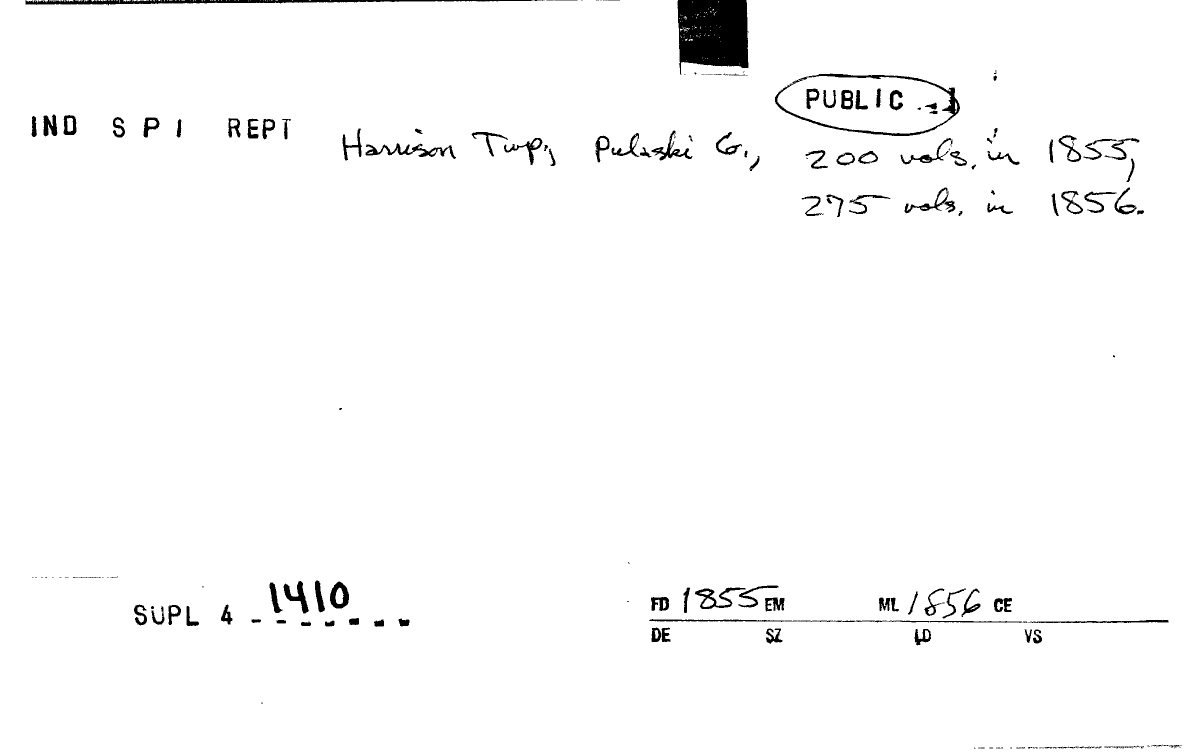 PUBLIC
IND S P I REPT Harrison Twp., Pulaski Co., 200 vols. in 1855,
275 vols. in 1856.
SUPL 4 1410
FD 1855 EM ML 1856 CE
DE SZ LD VS